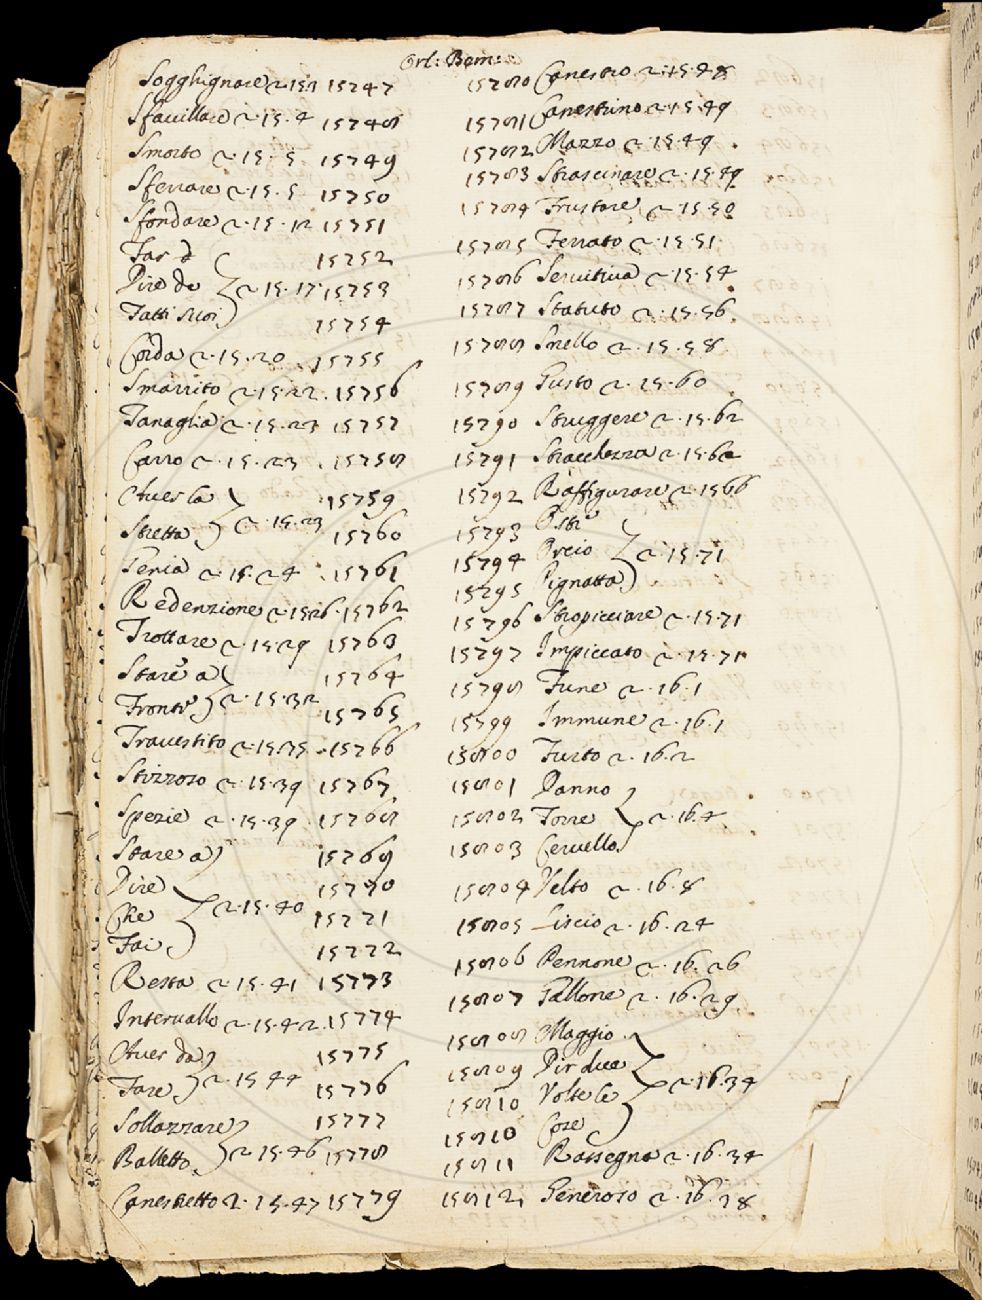 Orl: Bem:
Sogghignare 2. 15. 3 15747
Sfavillare 2. 15. 4 15748
Smorto 2. 15. 5 15749
Sferrare 2. 15. 5 15750
Sfondare 2. 15. 12 15751
Far d 15752
Dire de 2. 15. 17 15753
Fatti suoi 15754
Corda 2. 15. 20 15755
Smarrito 2. 15. 22 15756
Tanaglia 2. 15. 23 15757
Carro 2. 15. 23 15758
Aver la 15759
Stretta 2. 15. 23 15760
Tenia 2. 15. 24 15761
Redenzione 2. 15. 26 15762
Trottare 2. 15. 29 15763
Stare a 15764
Fronte 2. 15. 32 15765
Travestito 2. 15. 35 15766
Stizzoso 2. 15. 39 15767
Spezie 2. 15. 39 15768
Stare a 15769
Dire 15770
Che 2. 15. 40 15771
Fai 15772
Resta 2. 15. 41 15773
Intervallo 2. 15. 42 15774
Aver da 15775
Fare 2. 15. 44 15776
Sollazzare 15777
Balletto 2. 15. 46 15778
Canestretto 2. 15. 47 15779
15780 Canestro 2. 15. 48
15781 Canestrino 2. 15. 49
15782 Mazzo 2. 15. 49
15783 Strascinare 2. 15. 49
15784 Frustare 2. 15. 50
15785 Ferrato 2. 15. 51
15786 Servitiva 2. 15. 54
15787 Statuto 2. 15. 56
15788 Snello 2. 15. 58
15789 Gusto 2. 15. 60
15790 Struggere 2. 15. 62
15791 Stracchezza 2. 15. 62
15792 Raffigurare 2. 15. 66
15793
15794 Orcio 2. 15. 71
15795 Pignatta
15796 Stropicciare 2. 15. 71
15797 Impiccato 2. 15. 71
15798 Fune 2. 16. 1
15799 Immune 2. 16. 1
15800 Furto 2. 16. 2
15801 Danno
15802 Torre 2. 16. 4
15803 Cervello
15804 Velto 2. 16. 8
15805 Liscio 2. 16. 24
15806 Pennone 2. 16. 26
15807 Gallone 2. 16. 29
15808 Maggio
15809 Dir due
15810 Volte le 2. 16. 34
15810 Cose
15811 Rassegna 2. 16. 34
15812 Generoso 2. 16. 38